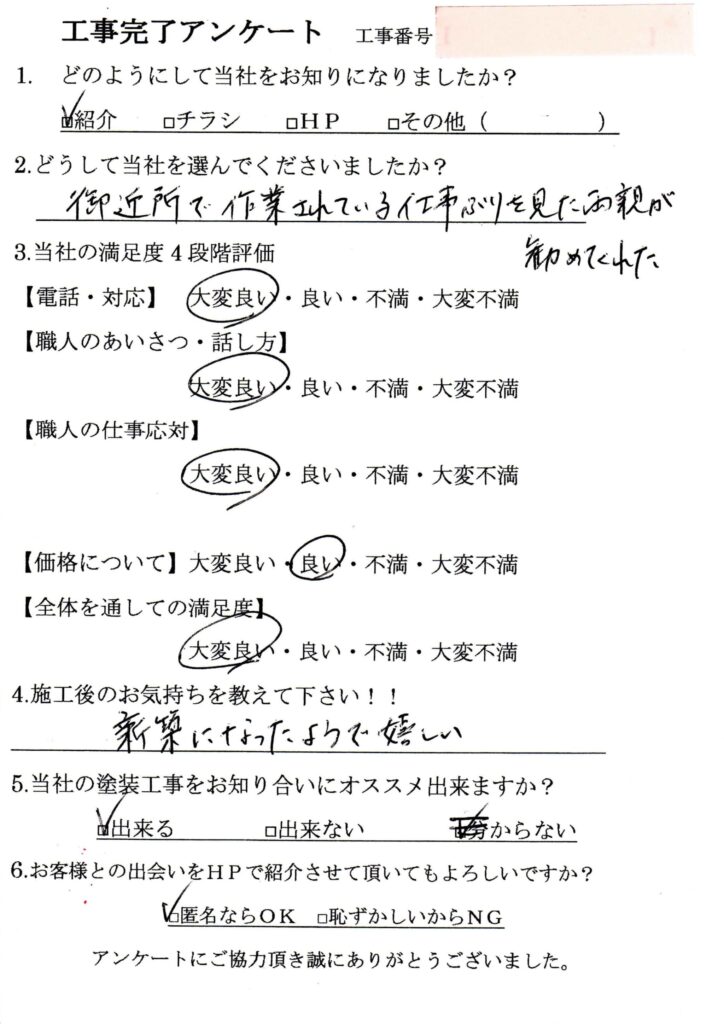 工事完了アンケート 工事番号
1. どのようにして当社をお知りになりましたか?
☑紹介 □チラシ □HP □その他( )
2.どうして当社を選んでくださいましたか?
御近所で作業されている仕事ぶりを見た両親が
勧めてくれた
3.当社の満足度4段階評価
【電話・対応】 大変良い・良い・不満・大変不満
【職人のあいさつ・話し方】
大変良い・良い・不満・大変不満
【職人の仕事応対】
大変良い・良い・不満・大変不満
【価格について】大変良い・良い・不満・大変不満
【全体を通しての満足度】
大変良い・良い・不満・大変不満
4.施工後のお気持ちを教えて下さい!!
新築になったようで嬉しい
5.当社の塗装工事をお知り合いにオススメ出来ますか?
☑出来る □出来ない ☑分からない
6.お客様との出会いをHPで紹介させて頂いてもよろしいですか?
☑匿名ならOK □恥ずかしいからNG
アンケートにご協力頂き誠にありがとうございました。